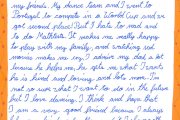 my friend. My dance team and I went to
Portugal to compete in a World Cup and we
got second place! But I hate to read and
to do Maths. It makes me really happy
to play with my family, and watching sad
movies makes me cry. I admire my dad a lot
because he helps me, he gets me what I want,
he is kind and loving and lots more. I'm
not so sure what I want to do in the future
but I love dancing. I think and hope that
I am a very good friend because I always